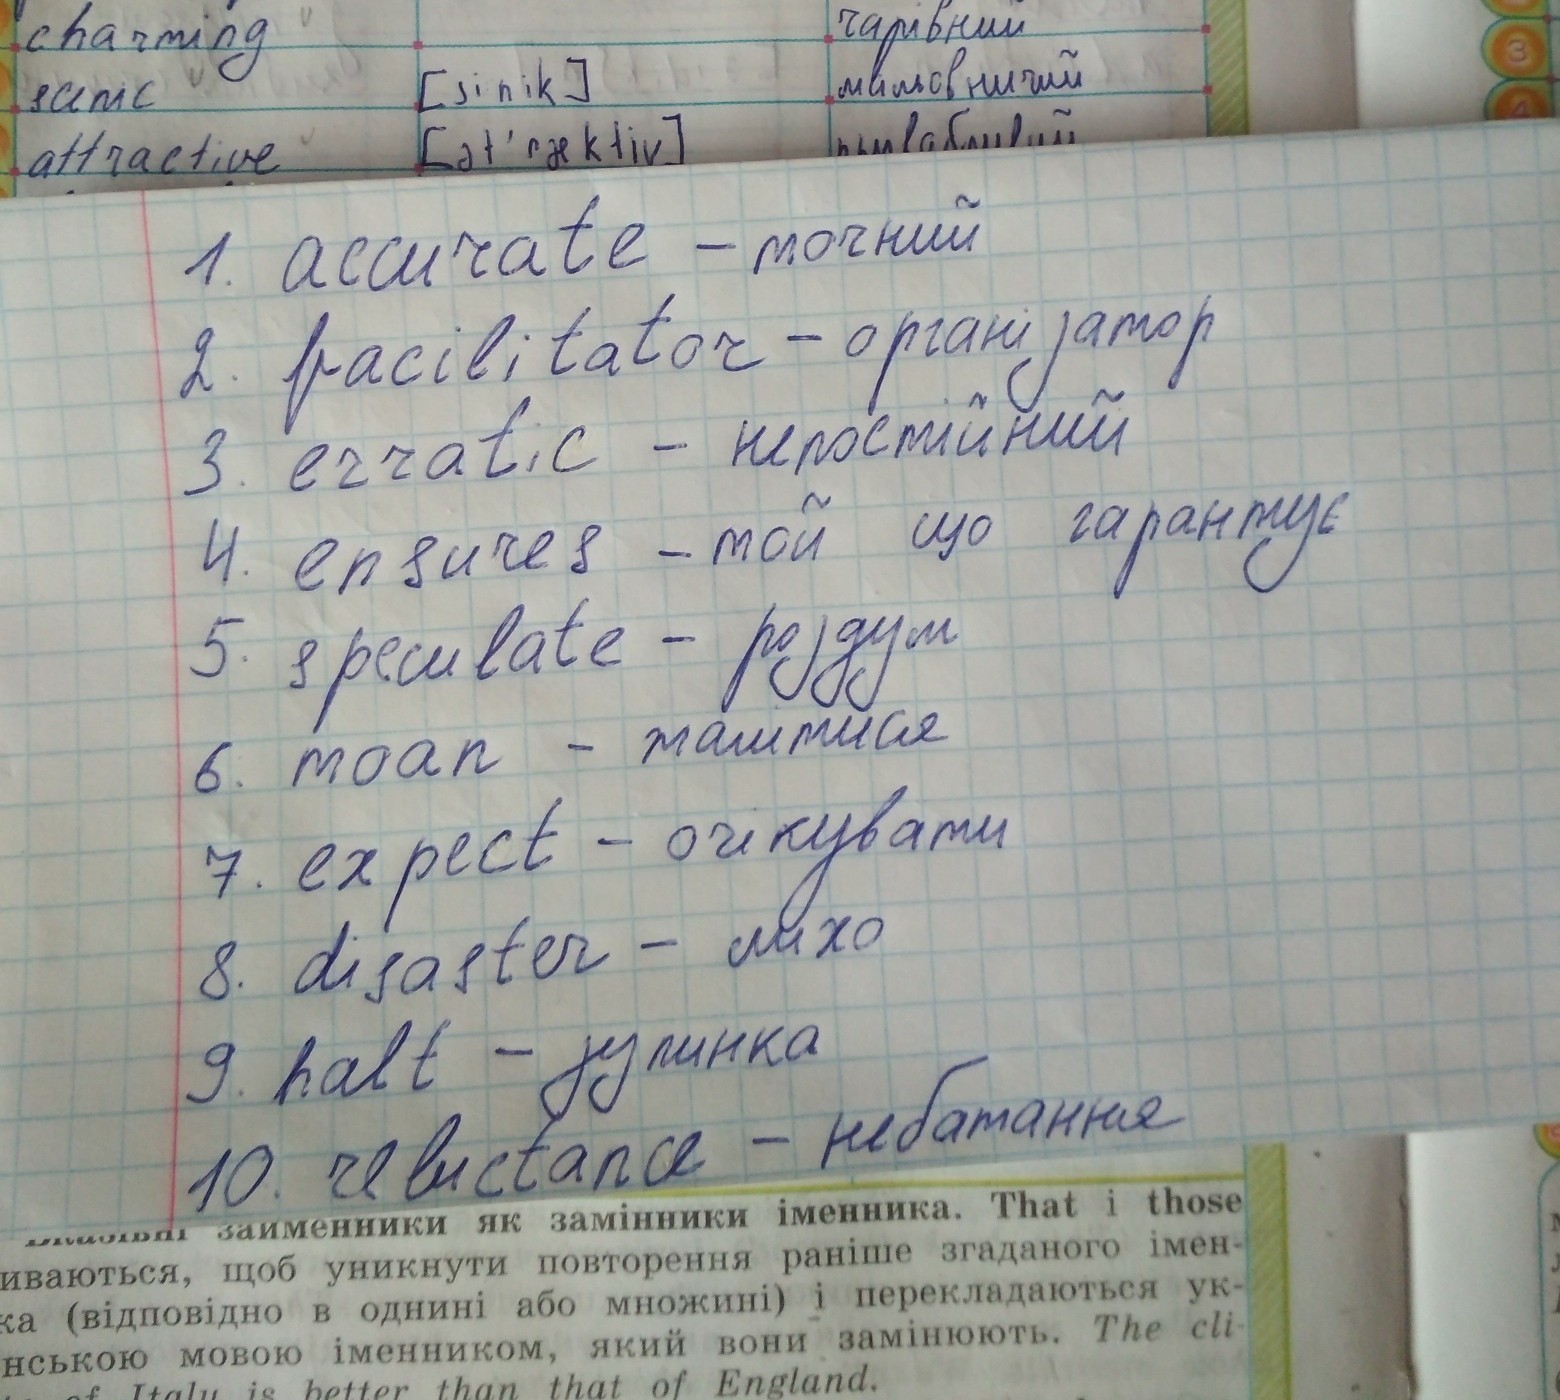 charming чарівний
scenic [sinik] мальовничий
attractive [ət'ræktiv] привабливий
1. accurate – точний
2. facilitator – організатор
3. erratic – непостійний
4. ensures – той що гарантує
5. speculate – роздум
6. moan –
7. expect – очікувати
8. disaster – лихо
9. halt – зупинка
10. reluctance – небатання
займенники як замінники іменника. That і those
иваються, щоб уникнути повторення раніше згаданого імен-
ка (відповідно в однині або множині) і перекладаються ук-
нською мовою іменником, який вони замінюють. The cli-
of Italy is better than that of England.
3
4